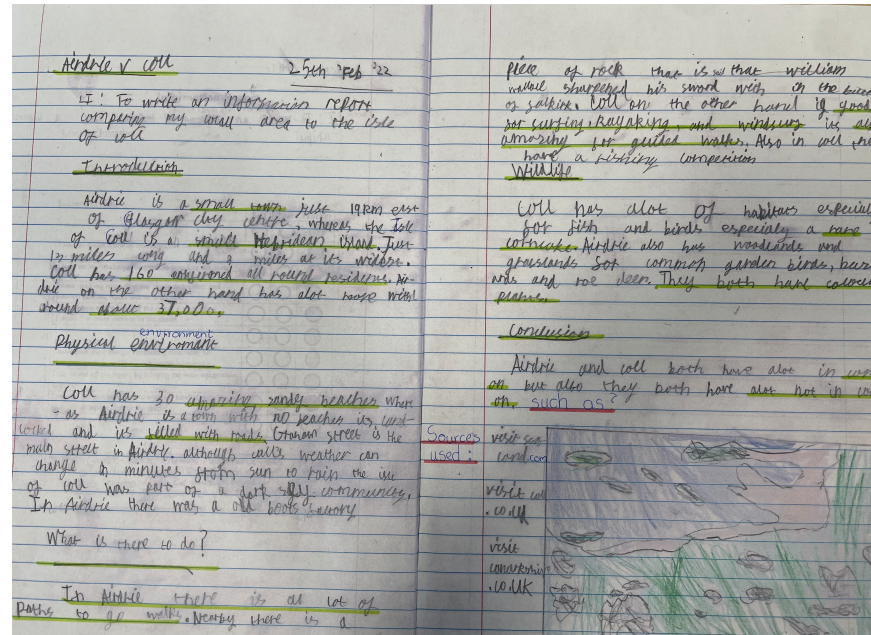 Airdrie v coll
25th Feb '22
LI: To write an information report
comparing my local area to the isle
of coll
Introduction
Airdrie is a small town just 19km east
of Glasgow city centre, whereas the Isle
of Coll is a small Hebridean island. Just
13 miles long and 3 miles at its widest.
Coll has 160 all round residents. Air-
drie on the other hand has alot more with
around about 37,000.
environment
Physical enviromant
Coll has 30 amazing sandy beaches where
-as Airdrie is a town with no beaches its land-
locked and its filled with roads. Graham street is the
main street in Airdrie. although colls weather can
change in minutes from sun to rain the isle
of coll was part of a dark sky community.
In Airdrie there was a old boots factory
What is there to do?
In Airdrie there is a lot of
paths to go walks. Nearby there is a
piece of rock that is that william
wallace sharpened his sword with in the
of falkirk. Coll on the other hand is good
for surfing, kayaking, and windsurf its
amazing for guided walks. Also in coll
have a fishing competition
Wildlife
Coll has alot of habitats especial
for fish and birds especialy a rare
corncrake. Airdrie also has woodlands and
grasslands for common garden birds, buzz
ards and roe deer. They both have
plants.
Conclusion
Airdrie and coll both have alot in
on but also they both have alot not in
on. such as?
Sources
used:
visit
land.com
visit coll
.co.uk
visit
lanarkshire
.co.uk